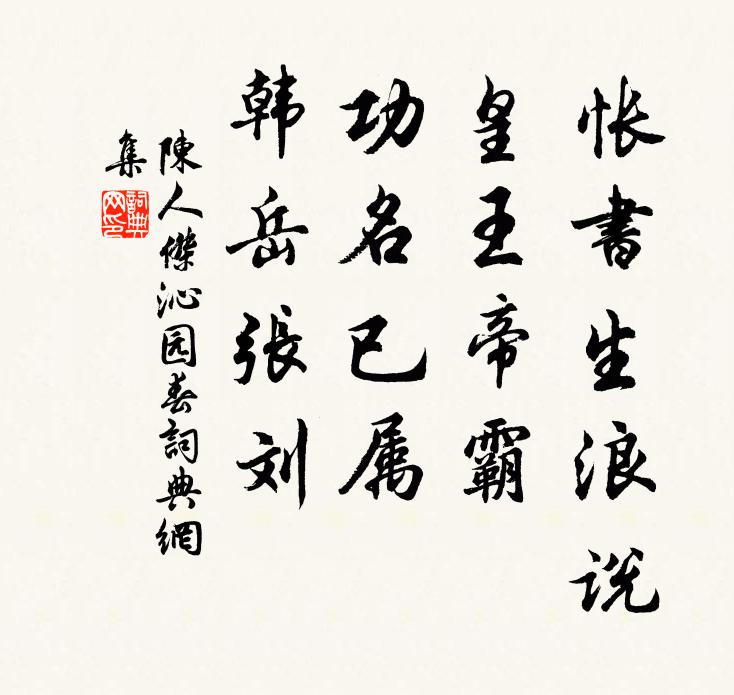 怅書生浪说
皇王帝霸
功名已属
韩岳張刘
陳人傑沁园春詞典網
集
詞典网印